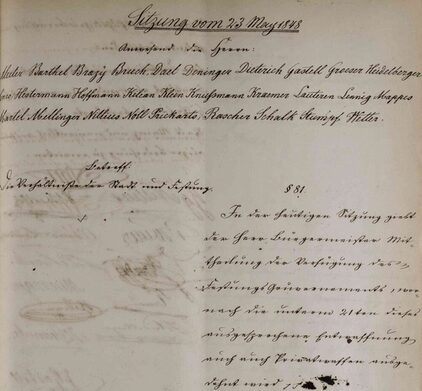 Sitzung vom 23 May 1848
Anwesend die Herrn:
Barthel Brazy Brusch. Dael Deninger Dieterich Gastell Groeser Heidelberger
Hestermann Hoffmann Kilian Klein Knußmann Kraemer Lauteren Lennig Mappes
Martel Mellinger Nillius Noll Pickarts, Rascher Schalk Stumpf. Wetter.
Betreff:
Die Verhältniße der Stadt und Festung.
§ 81.
In der heutigen Sitzung giebt
der Herr Bürgermeister Mit-
theilung der Verfügung des
Festungs Gouvernements, wor-
nach die unterm 21ten dieses
ausgesprochene Entwaffnung
auch auf Privatwaffen ausge-
dehnt wird